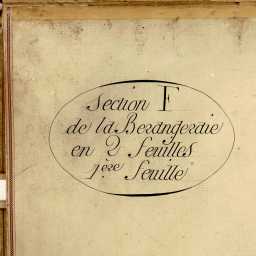 Section F
de la Berangeraie
en 2 feuilles
1ère feuille